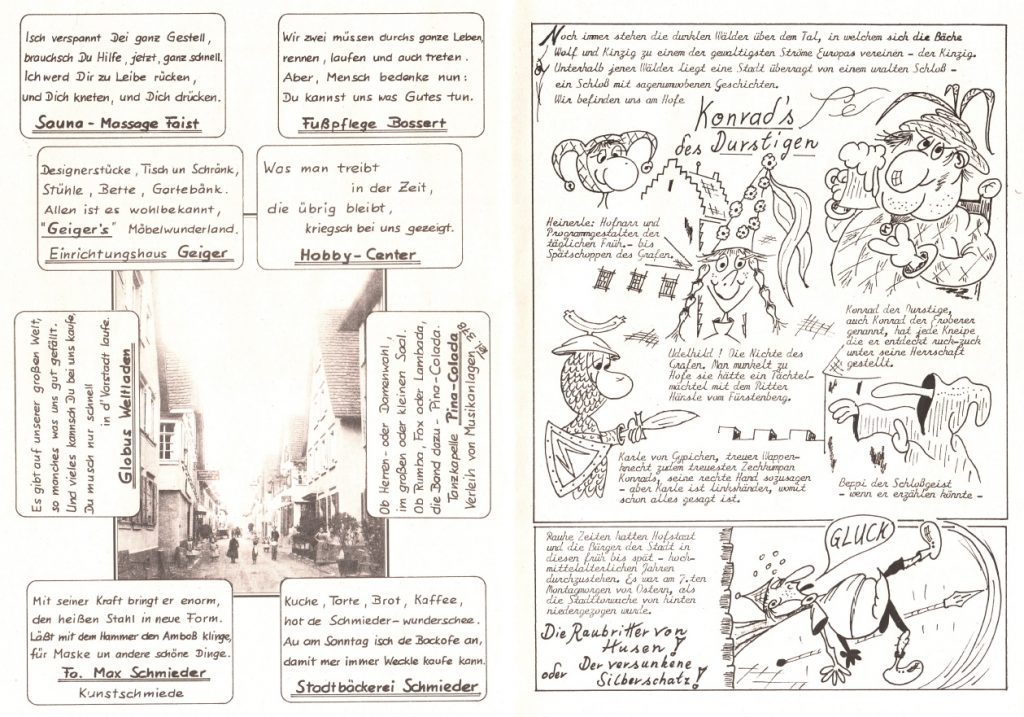 Isch verspannt Dei ganz Gestell,
brauchsch Du Hilfe, jetzt, ganz schnell.
Ich werd Dir zu Leibe rücken,
und Dich kneten, und Dich drücken.
Sauna - Massage Faist
Wir zwei müssen durchs ganze Leben,
rennen, laufen und auch treten.
Aber, Mensch bedenke nun:
Du kannst uns was Gutes tun.
Fußpflege Bossert
Designerstücke, Tisch un Schränk,
Stühle, Bette, Gartebänk.
Allen ist es wohlbekannt,
"Geiger's" Möbelwunderland.
Einrichtungshaus Geiger
Was man treibt
in der Zeit,
die übrig bleibt,
kriegsch bei uns gezeigt.
Hobby-Center
Es gibt auf unserer großen Welt,
so manches was uns gut gefällt.
Und vieles kannsch Du bei uns kaufe,
Du musch nur schnell
in d'Vorstadt laufe.
Globus Weltladen
Ob Herren- oder Damenwahl,
im großen oder kleinen Saal.
Ob Rumba, Fox oder Lambada,
die Band dazu - Pina-Colada.
Tanzkapelle Pina-Colada
Verleih von Musikanlagen
Mit seiner Kraft bringt er enorm,
den heißen Stahl in neue Form.
Läßt mit dem Hammer den Amboß klinge,
für Maske un andere schöne Dinge.
Fa. Max Schmieder
Kunstschmiede
Kuche, Torte, Brot, Kaffee,
hot de Schmieder - wunderschee.
Au am Sonntag isch de Backofe an,
damit mer immer Weckle kaufe kann.
Stadtbäckerei Schmieder
Noch immer stehen die dunklen Wälder über dem Tal, in welchem sich die Bäche
Wolf und Kinzig zu einem der gewaltigsten Ströme Europas vereinen - der Kinzig.
Unterhalb jener Wälder liegt eine Stadt überragt von einem uralten Schloß -
ein Schloß mit sagenumwobenen Geschichten.
Wir befinden uns am Hofe
Konrad's
des Durstigen
Heinerle: Hofnarr und
Programmgestalter der
täglichen Früh.- bis
Spätschoppen des Grafen.
Udelhild! Die Nichte des
Grafen. Man munkelt zu
Hofe sie hätte ein Tächtel-
mächtel mit dem Ritter
Hänsle vom Fürstenberg.
Konrad der Durstige,
auch Konrad der Eroberer
genannt, hat jede Kneipe
die er entdeckt ruck-zuck
unter seine Herrschaft
gestellt.
Karle von Gypichen, treuer Wappen-
knecht zudem treuester Zechkumpan
Konrads, seine rechte Hand sozusagen
- aber Karle ist linkshänder, womit
schon alles gesagt ist.
Beppi der Schloßgeist
- wenn er erzählen könnte -
Rauhe Zeiten hatten Hofstaat
und die Bürger der Stadt in
diesen früh bis spät - hoch-
mittelalterlichen Jahren
durchzustehen. Es war am 7.ten
Montagmorgen vor Ostern, als
die Stadttorwache von hinten
niedergezogen wurde.
Die Raubritter von
Husen!
oder Der versunkene
Silberschatz!
GLUCK